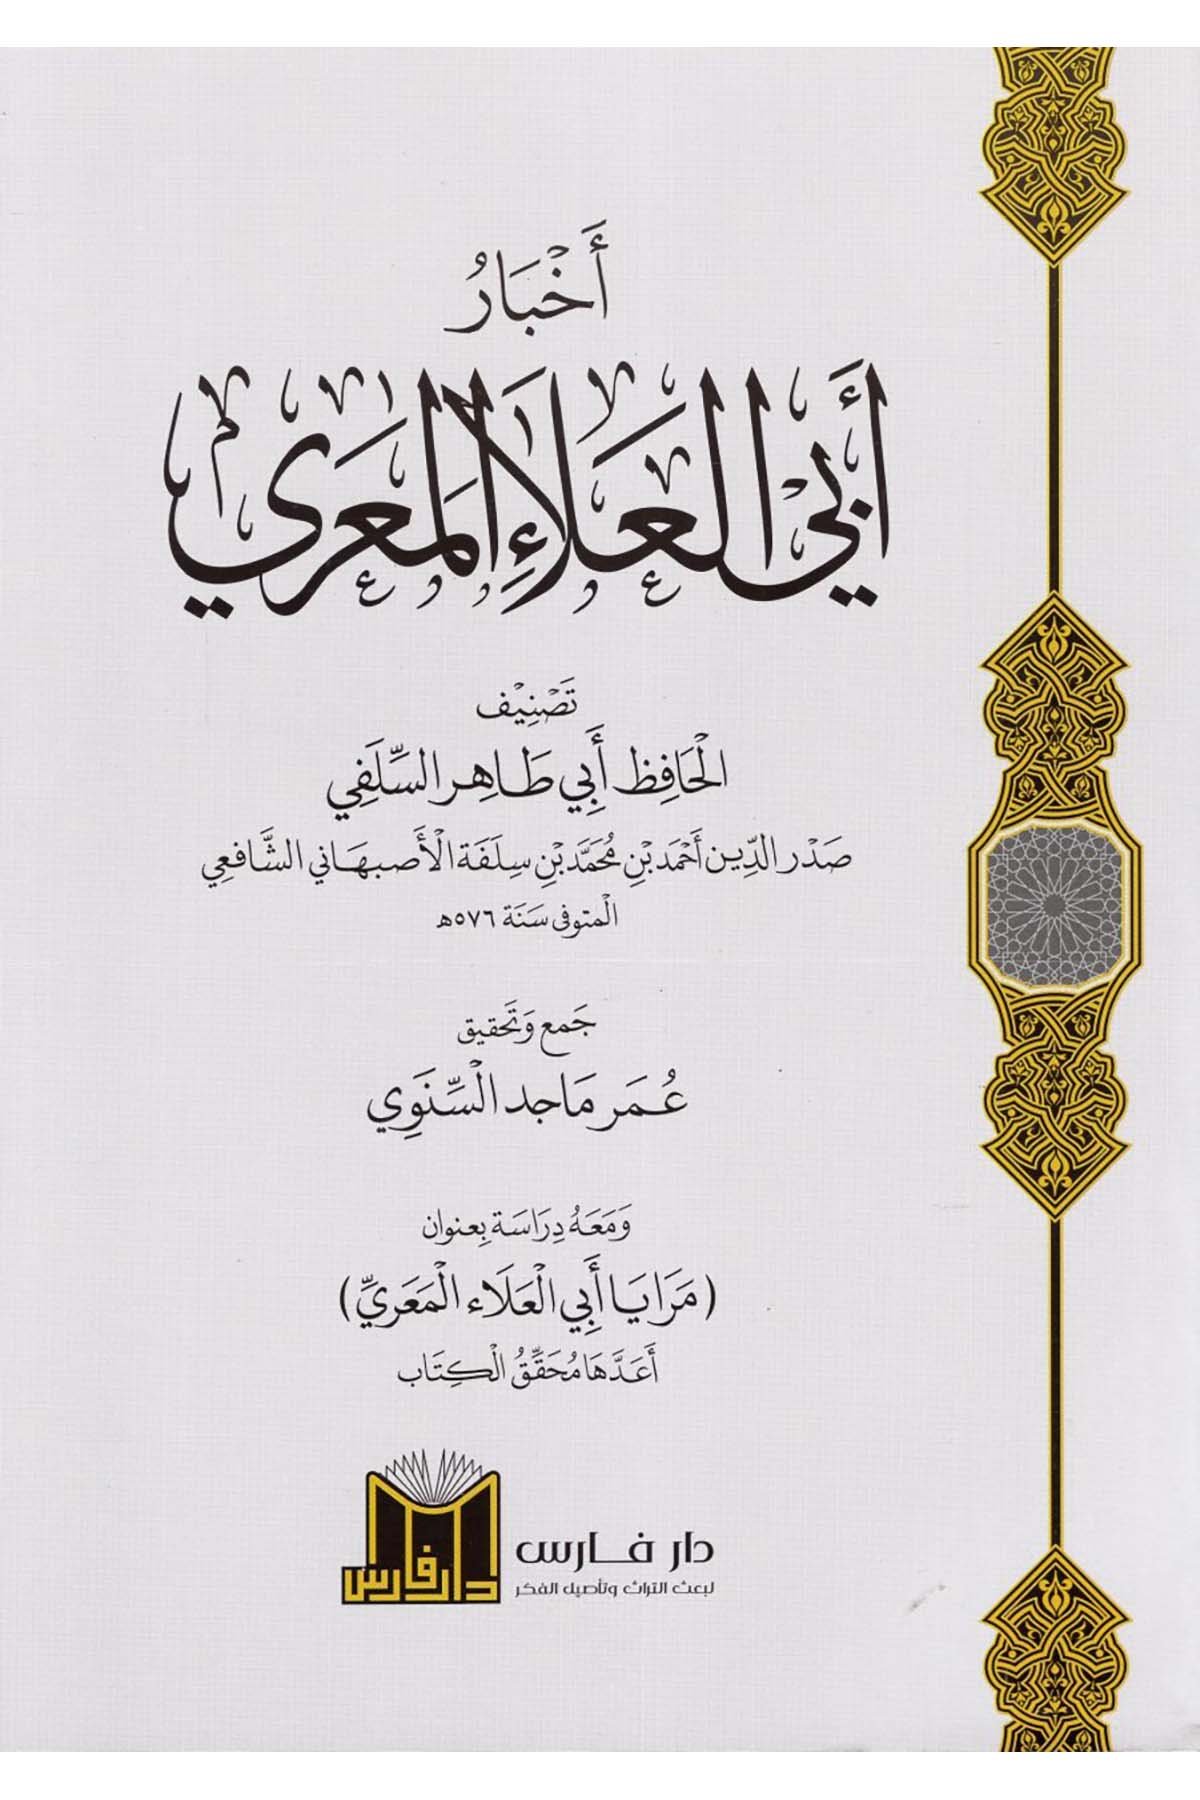 أَخْبَارُ
أَبي العَلاَءِ المَعَري
تَصْنِيْف
الْحَافِظ أَبِي طَاهِر السِّلَفِي
صَدْر الدِّين أَحْمَد بْن مُحَمَّد بْن سِلَفَة الْأَصبهَاني الشَّافعِي
الْمتوفى سَنَة ٥٧٦هـ
جَمع وَتَحقيق
عُمَر مَاجد السِّنَوِي
وَمَعَهُ دِرَاسَة بِعنوان
(مَرَايَا أَبِي الْعَلَاء الْمَعَرِيِّ)
أَعَدَّهَا مُحَقِّقُ الْكِتَاب
دار فارس
دار فارس
لبعث التراث وتأصيل الفكر